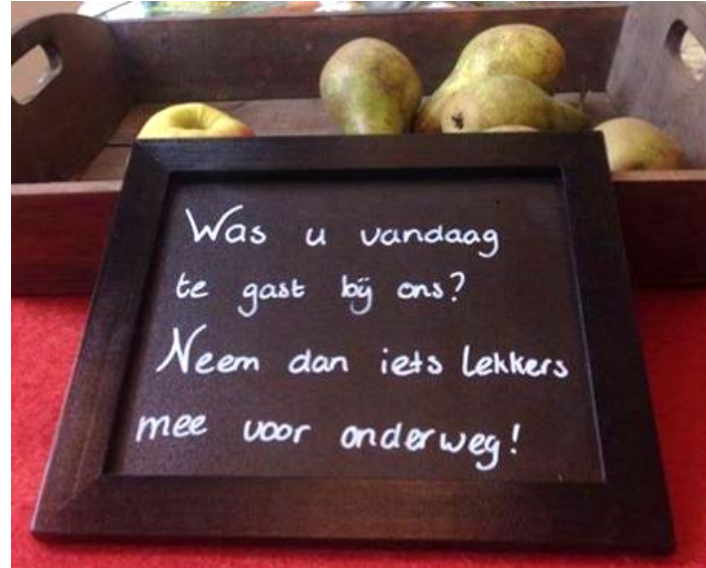 Was u vandaag
te gast bij ons?
Neem dan iets lekkers
mee voor onderweg!